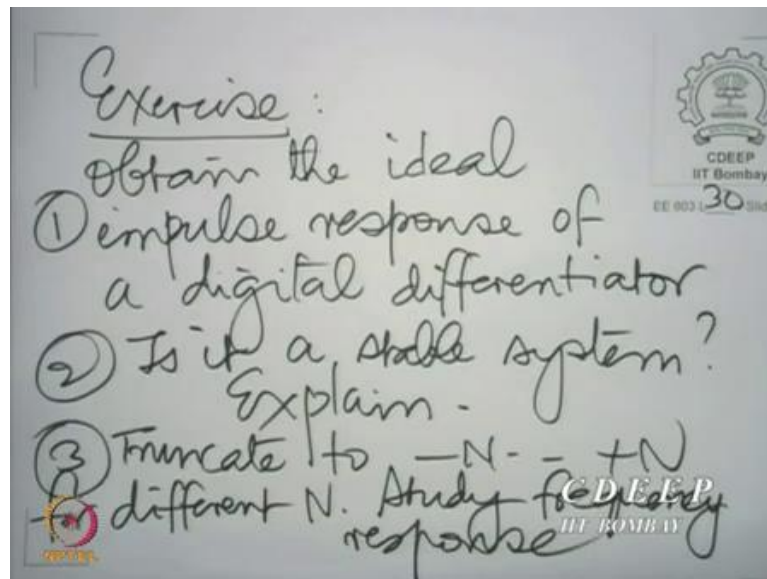 Exercise :
Obtain the ideal
① impulse response of
a digital differentiator
② Is it a stable system?
Explain.
③ Truncate to -N - - +N
for different N. Study frequency
response.
CDEEP
IIT Bombay
EE 603 L 30 Slid
CDEEP
IIT BOMBAY
NPTEL